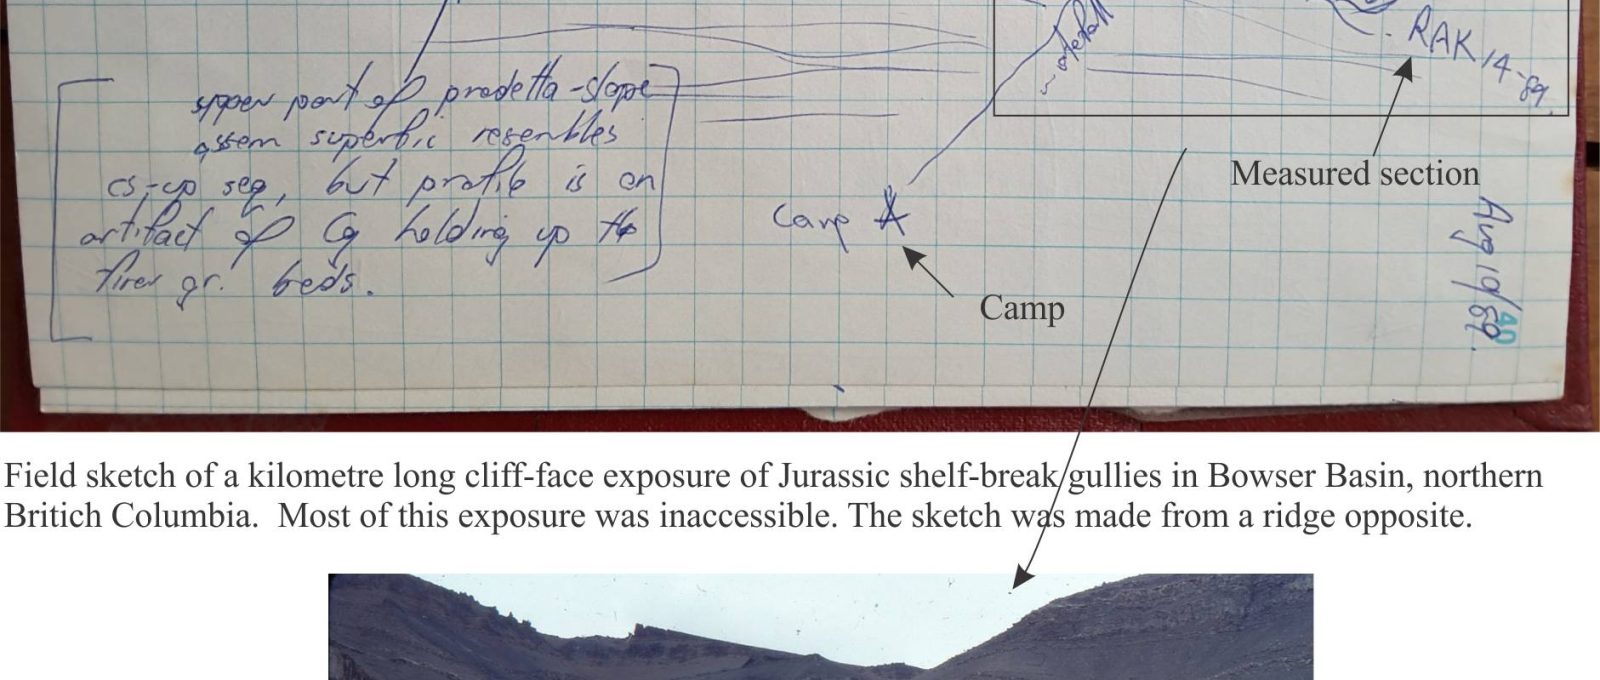 upper part of prodelta-slope
assem superfic resembles
cs-up seq, but profile is an
artifact of Cg holding up the
finer gr. beds.
Camp
Camp
RAK 14-89.
Measured section
Aug 10/89.
40
Field sketch of a kilometre long cliff-face exposure of Jurassic shelf-break gullies in Bowser Basin, northern
Britich Columbia. Most of this exposure was inaccessible. The sketch was made from a ridge opposite.